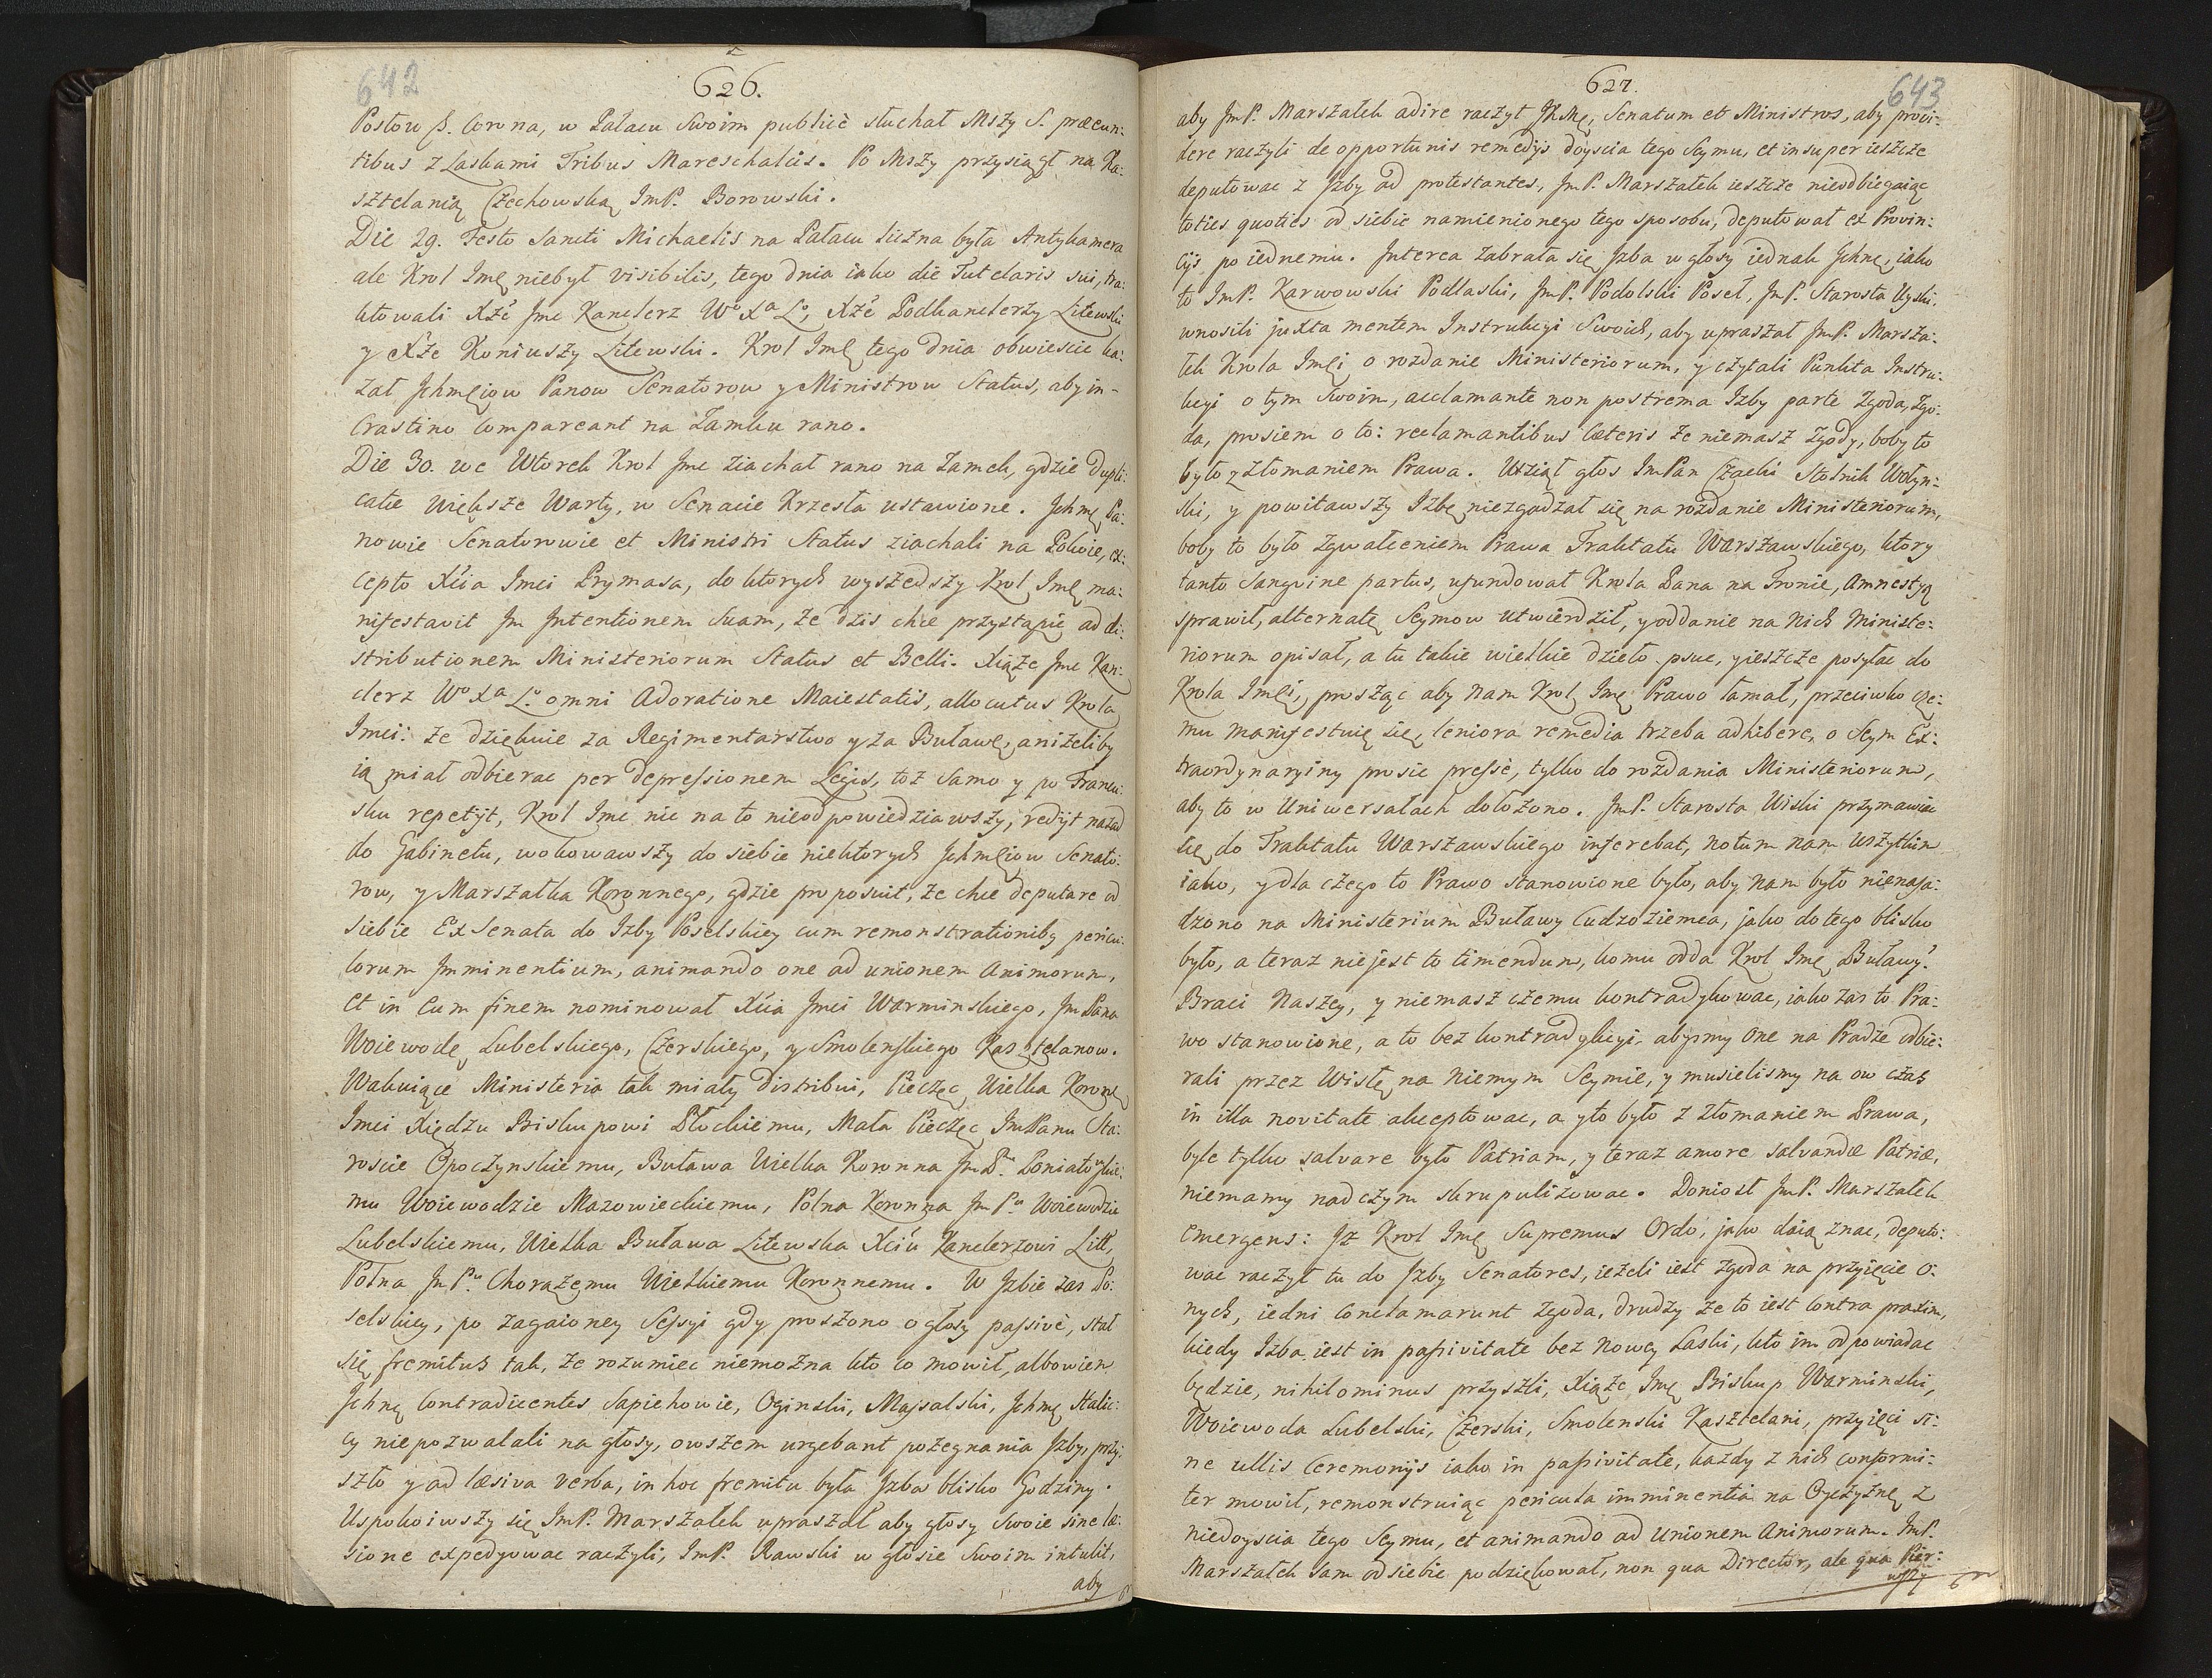 642
626.
Posłow ß. Corona, w Pałacu Swoim publicè słuchał Mszy S. præeun:
tibus z Laskami Tribus Mareschalcis. Po Mszy przysiągł na Ka:
sztelanią Czechowską ImP. Borowski.
Die 29. Festo Sancti Michaelis na Pałacu liczna była Antykamera
ale Krol Imę niebył visibilis, tego dnia iako die Tutelaris sui, tra:
ktowali Xże Jmc Kanclerz Wº Xª Lº, Xże Podkanclerzy Litewski
y Xże Koniuszy Litewski. Krol Imę tego dnia obwiescic ka:
zał Jchmęiow Panow Senatorow y Ministrow Status, aby in-
Crastino compareant na Zamku rano.
Die 30. we Wtorek Krol Jmc ziachał rano na Zamek, gdzie dupli:
catæ większe Warty, w Senacie Krzesła ustawione. Jchmę Pa:
nowie Senatorowie et Ministri Status ziachali na Pokoie, ex:
cepto Xcia Imci Prymasa, do ktorych wyszedszy Krol Imę ma:
nifestavit Im Intentionem Suam, że dzis chce przystąpic ad di:
stributionem Ministeriorum Status et Belli. Xiąże Jmc Kan:
clerz Wº Xª Lº omni Adoratione Maiestatis, allocutus Krola
Imci: że dziękuie za Regimentarstwo y za Buławę, aniżeliby
ią miał odbierac per depressionem Legis, toż samo y po Francu:
sku repetijt, Krol Imc nic na to nieodpowiedziawszy, redijt nazad
do Gabinetu, wokowawszy do siebie niektorych Jchmęiow Senato:
row, y Marszałka Koronnego, gdzie proposuit, że chce deputare od
siebie Ex Senatu do Izby Poselskiey cum remonstrationibꝯ pericu:
lorum Imminentium, animando one ad unionem Animorum,
et in Eum finem nominował Xcia Jmci Warminskiego, Jm Pana
Woiewodę Lubelskiego, Czerskiego, y Smolenskiego Kasztelanow.
Wakuiące Ministeria tak miały distribui, Pieczęc Wielka Koronę
Imci Xiędzu Biskupowi Płockiemu, Mała Pieczęc ImPanu Sta:
roscie Opoczynskiemu, Buława Wielka Koronna Jm Pu Poniatowskie:
mu Woiewodzie Mazowieckiemu, Polna Koronna Jm Pu Woiewodzie
Lubelskiemu, Wielka Buława Litewska Xciu Kanclerzowi Litt,
Polna Jm Pu Chorążemu Wielkiemu Koronnemu. W Jzbie zas Po:
selskiey, po zagaioney Sessyi gdy proszono o głosy passivè, stał
się fremitus tak, że rozumiec niemożna kto co mowił, albowiem
Jchmę Contradicentes Sapiehowie, Oginski, Massalski, Jchmę Halic:
cy niepozwalali na głosy, owszem urgebant pożegnania Jzby, przy:
szło y ad læsiva verba, in hoc fremitu była Jzba blisko Godziny.
Uspokoiwszy się ImP. Marszałek upraszał aby głosy Swoie sine læ:
sione expedyowac raczyli, ImP. Rawski w głosie Swoim intulit,
aby
643
627.
aby Jm P. Marszałek adire raczył JKMę, Senatum et Ministros, aby provi:
dere raczyli de opportunis remedijs doyscia tego Seymu, et insuper ieszcze
deputowac z Jzby ad protestantes, Jm P. Marszałek ieszcze nieodbiegaiąc
toties quoties od siebie namienionego tego sposobu, deputował ex Provin:
cijs po iednemu. Interea zabrała się Jzba w głosy iednak Jchmę, iako
to ImP. Karwowski Podlaski, JmP. Podolski Poseł, JmP. Starosta Uyski,
wnosili juxta mentem Instrukcyi Swoich, aby upraszał JmP. Marsza:
łek Krola Imęi o rozdanie Ministeriorum, y czytali Punkta Instru:
kcyi o tym Swoim, acclamante non postrema Izby parte Zgoda, Zgo:
da, prosiem o to: reclamantibus cæteris że niemasz Zgody, boby to
było z złomaniem Prawa. Wziął głos ImPan Czacki Stolnik Wołyn:
ski, y powitawszy Izbę niezgadzał się na rozdanie Ministeriorum,
boby to było Zgwałceniem Prawa Traktatu Warszawskiego, ktory
tanto Sangvine partus, ufundował Krola Pana na Tronie, Amnestyą
sprawił, alternatę Seymow utwierdził, y oddanie na nich Ministe:
riorum opisał, a tu takie wielkie dzieło psuc, y ieszcze posyłac do
Krola Imęi, prosząc aby nam Krol Imę Prawo łamał, przeciwko cze:
mu manifestuię się, leniora remedia trzeba adhibere, o Seym Ex:
traordynaryiny prosic pressè, tylko do rozdania Ministeriorum,
aby to w Uniwersałach dołożono. JmP. Starosta Wiski przymawiaiąc
się do Traktatu Warszawskiego inferebat, notum nam wszytkim
iako, y dla czego to Prawo stanowione było, aby nam było nienasa:
dzono na Ministerium Buławy Cudzoziemca, jako do tego blisko
było, a teraz niejest to timendum, komu odda Krol Imę Buławy?
Braci Naszey, y niemasz czemu kontradykowac, iako zas to Pra:
wo stanowione, a to bez kontradykcyi, abysmy one na Pradze odbie:
rali przez Wisłę na Niemym Seymie, y musielismy na ow czas
in illa novitate akceptowac, a y to było z złomaniem Prawa,
byle tylko salvare było Patriam, y teraz amore salvandæ Patriæ,
niemamy nad czym skrupulizowac. Doniosł JmP. Marszałek
emergens: Jż Krol Imę Supremus Ordo, jako daią znac, deputo:
wac raczył tu do Jzby Senatores, ieżeli iest zgoda na przyięcie o:
nych, iedni Conclamarunt zgoda, drudzy że to iest contra praxim,
kiedy Izba iest in passivitate bez nowey Laski, kto im odpowiadac
będzie, nihilominus przyszli, Xiąże Imę Biskup Warminski,
Woiewoda Lubelski, Czerski, Smolenski Kasztelani, przyięci si:
ne ullis Ceremonijs iako in passivitate, każdy z nich conformi:
ter mowił, remonstruiąc pericula imminentia na Oyczyznę z
niedoyscia tego Seymu, et animando ad Unionem Animorum. ImP.
Marszałek sam od siebie podziękował, non qua Director, ale qua Pier:
wszy